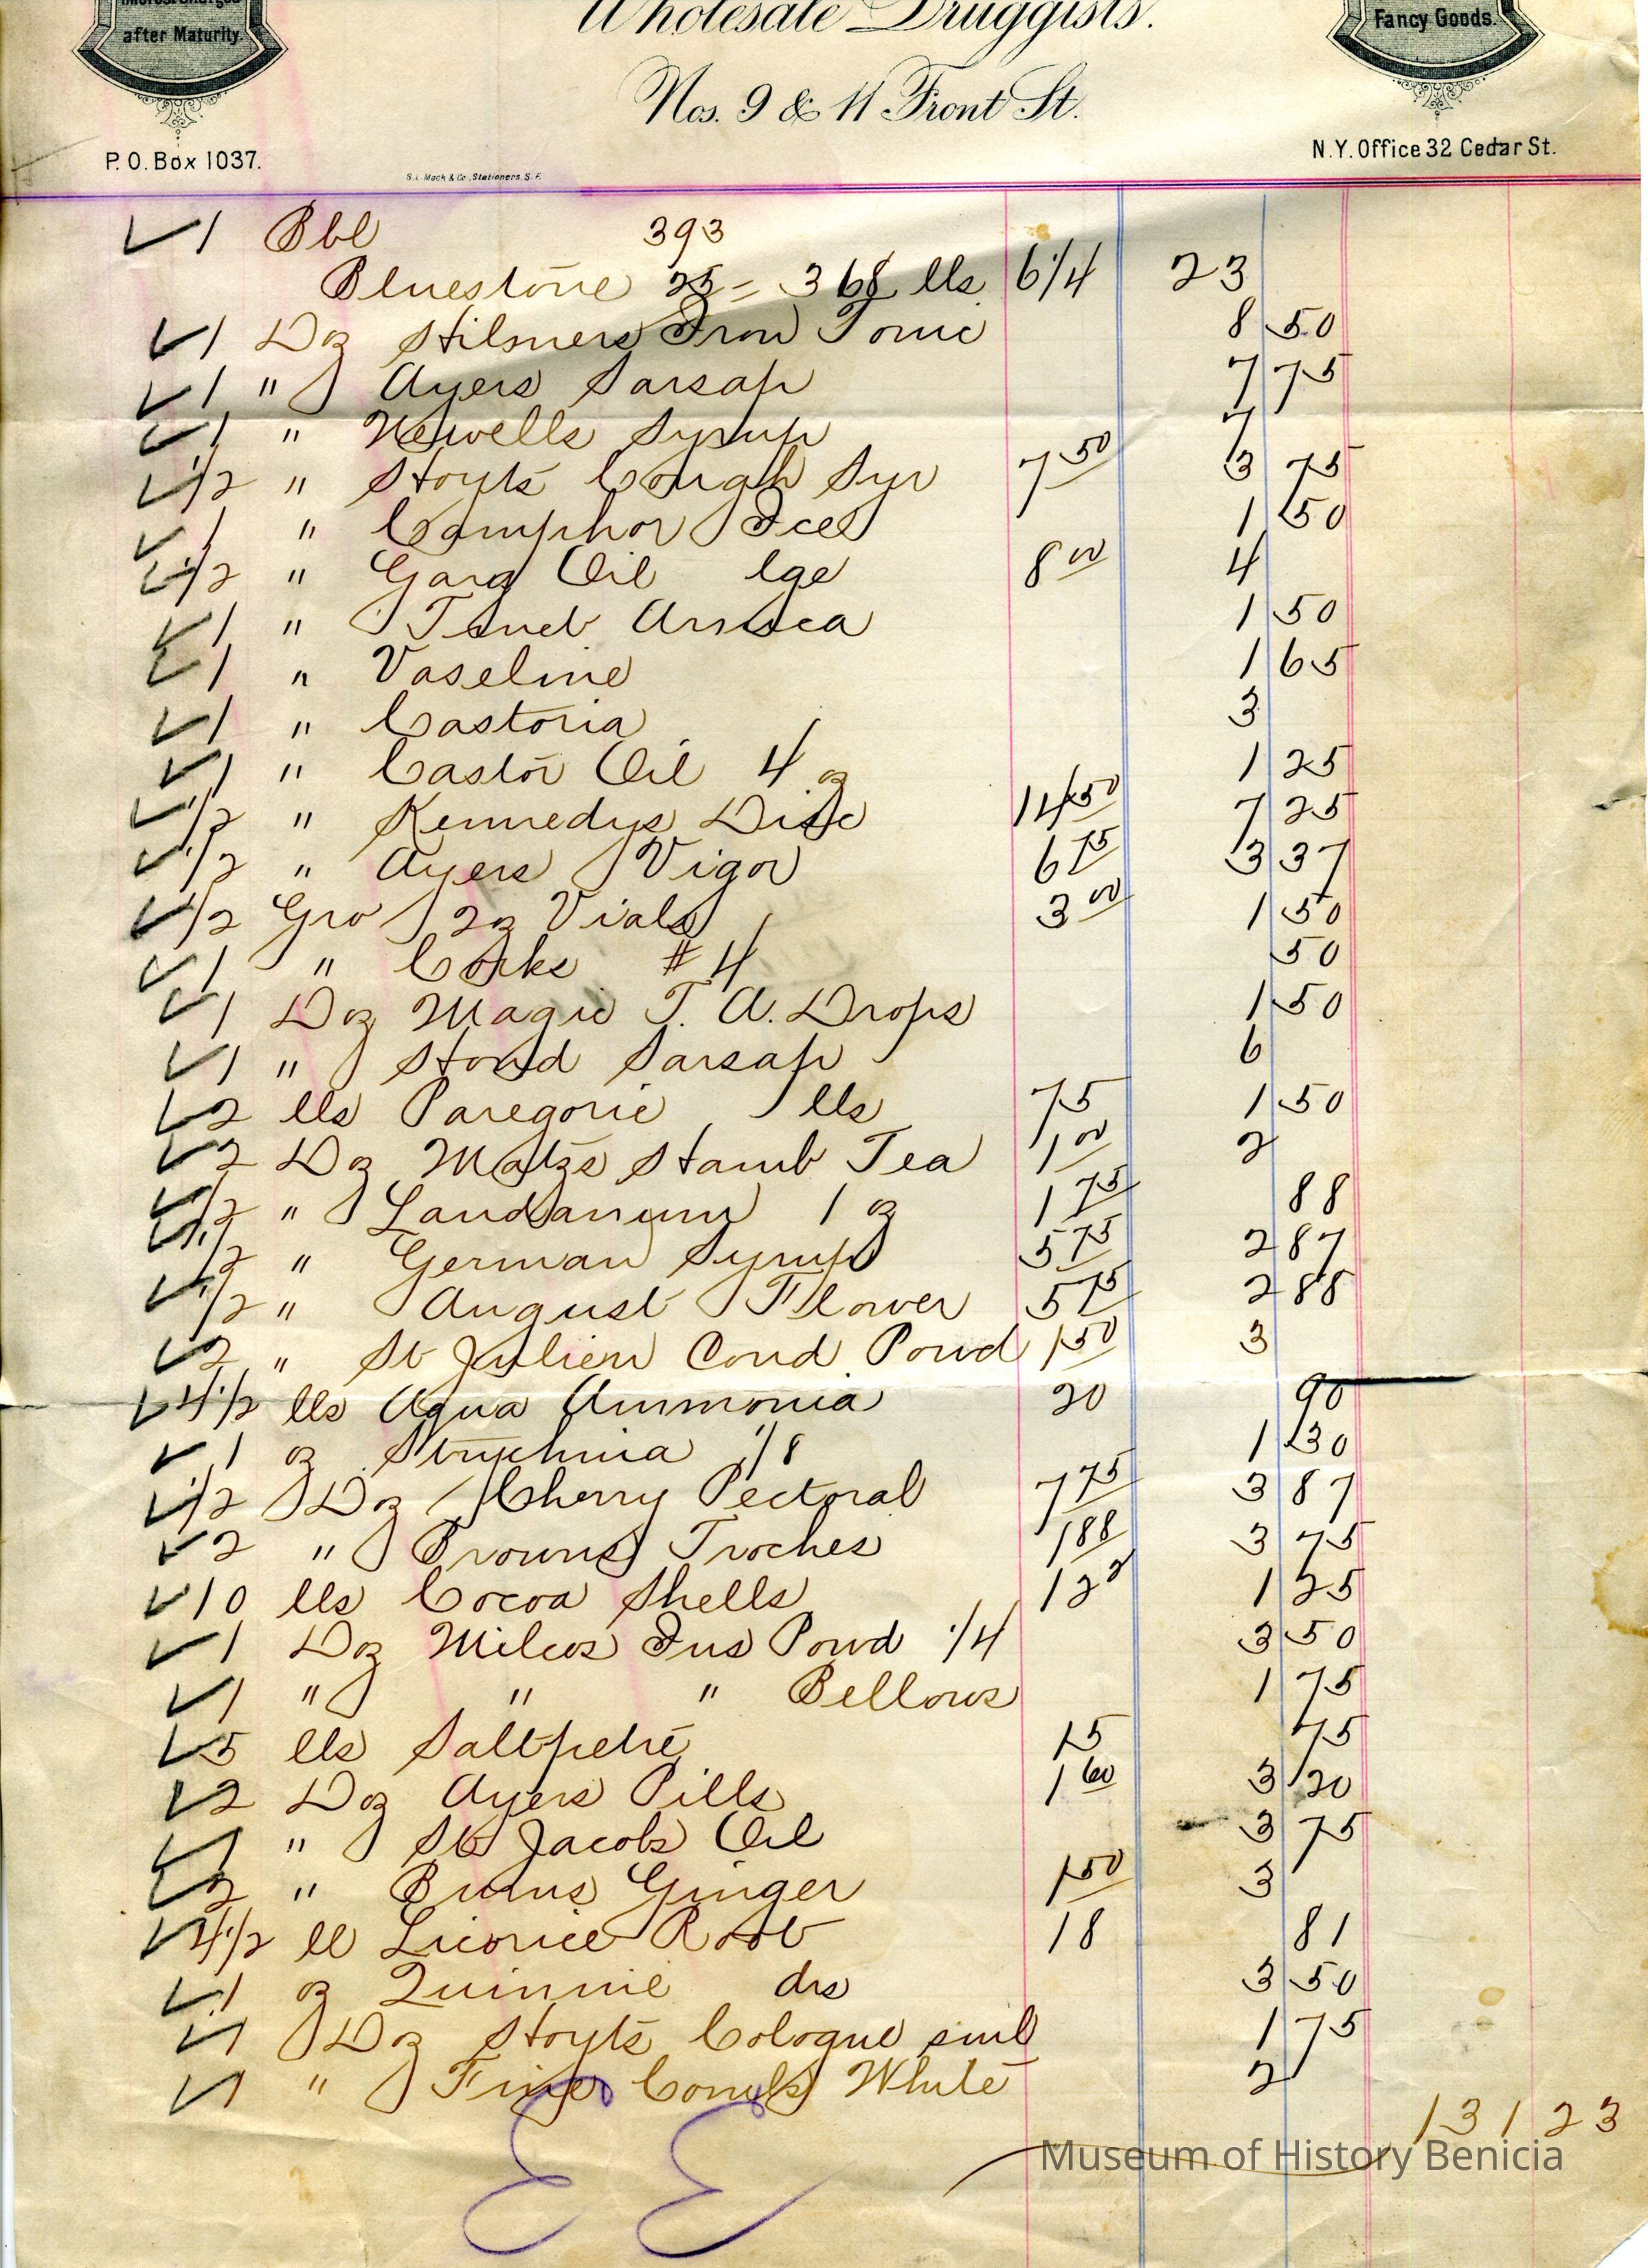 after Maturity.
Wholesale Druggists.
Fancy Goods.
Nos. 9 & 11 Front St.
P.O. Box 1037.
N.Y. Office 32 Cedar St.
S.L. Mack & Co., Stationers, S.F.
1 Bbl 393
Bluestone 25 = 368 lbs 6 1/4 23
1 Doz Hilsmers Iron Tonic 8 50
1 " Ayers Sarsap 7 75
1 " Newells Syrup 7
1/2 " Hoyts Cough Syr 7 50 3 75
1 " Camphor Ice 1 50
1/2 " Garg Oil lge 8 00 4
1 " Tinct Arnica 1 50
1 " Vaseline 1 65
1 " Castoria 3
1 " Castor Oil 4 oz 1 25
1/2 " Kennedys Disc 14 50 7 25
1/2 " Ayers Vigor 6 75 3 37
1/2 Gro 2 oz Vials 3 00 1 50
1 " Corks # 4 50
1 Doz Magic T. A. Drops 1 50
1 " Hood Sarsap 6
2 lbs Paregoric lbs 75 1 50
2 Doz Hamb Tea 1 00 2
1/2 " Laudanum 1 oz 1 75 88
1/2 " German Syrup 5 75 2 87
1/2 " August Flower 5 75 2 88
2 " St Julien Cond Powd 1 50 3
4 1/2 lbs Aqua Ammonia 20 90
1 oz Strychnia 1/8 1 30
1/2 Doz Cherry Pectoral 7 75 3 87
2 " Browns Troches 1 88 3 75
10 lbs Cocoa Shells 12 1/2 1 25
1 Doz Milcos Ins Powd 1/4 3 50
1 " " " Bellows 1 75
5 lbs Saltpetre 15 75
2 Doz Ayers Pills 1 60 3 20
1 " St Jacobs Oil 3 75
2 " Burns Ginger 1 50 3
4 1/2 lb Licorice Root 18 81
1 oz Quinine drs 3 50
1 Doz Hoyts Cologne sml 1 75
1 " Fine Combs White 2
131 23
Museum of History Benicia